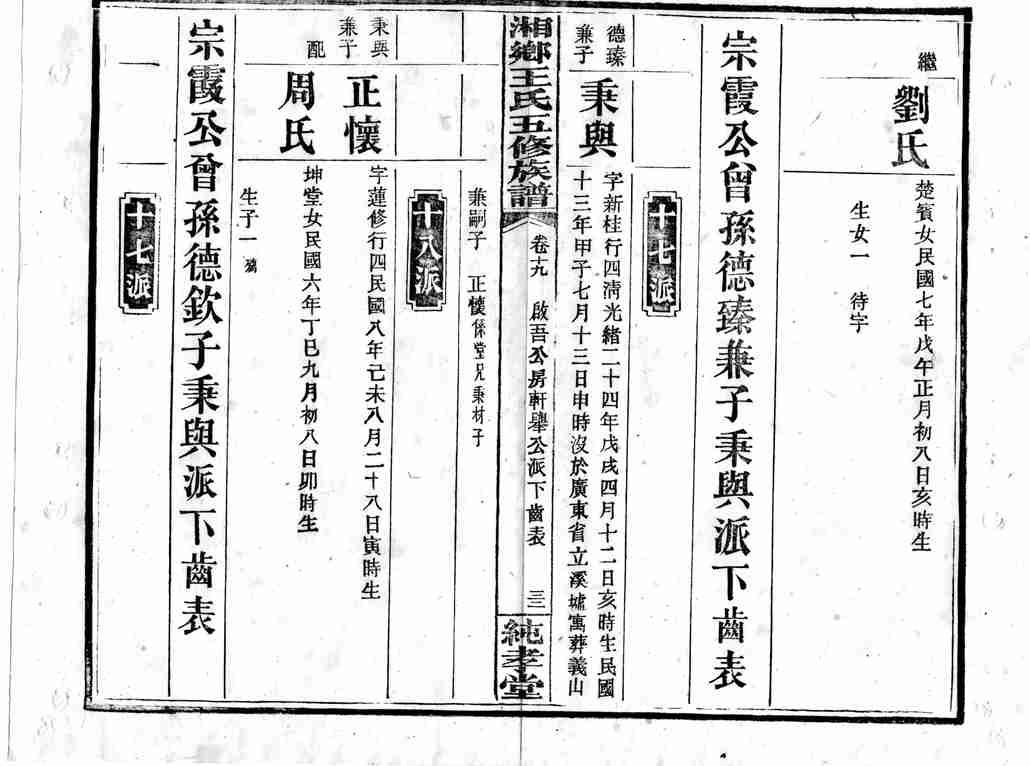 繼
劉氏
楚賓女民國七年戊午正月初八日亥時生
生女一 待字
宗霞公曾孫德臻兼子秉與派下齒表
十七派
德臻
兼子
秉與
字新桂行四清光緒二十四年戊戌四月十二日亥時生民國
十三年甲子七月十三日申時沒於廣東省立溪墟寓葬義山
湘鄉王氏五修族譜
卷十九 啟吾公房軒舉公派下齒表 三
純孝堂
兼嗣子 正懷係堂兄秉材子
十八派
秉與
兼子
正懷
字蓮修行四民國八年己未八月二十八日寅時生
配
周氏
坤堂女民國六年丁巳九月初八日卯時生
生子一 殤
宗霞公曾孫德欽子秉與派下齒表
十七派